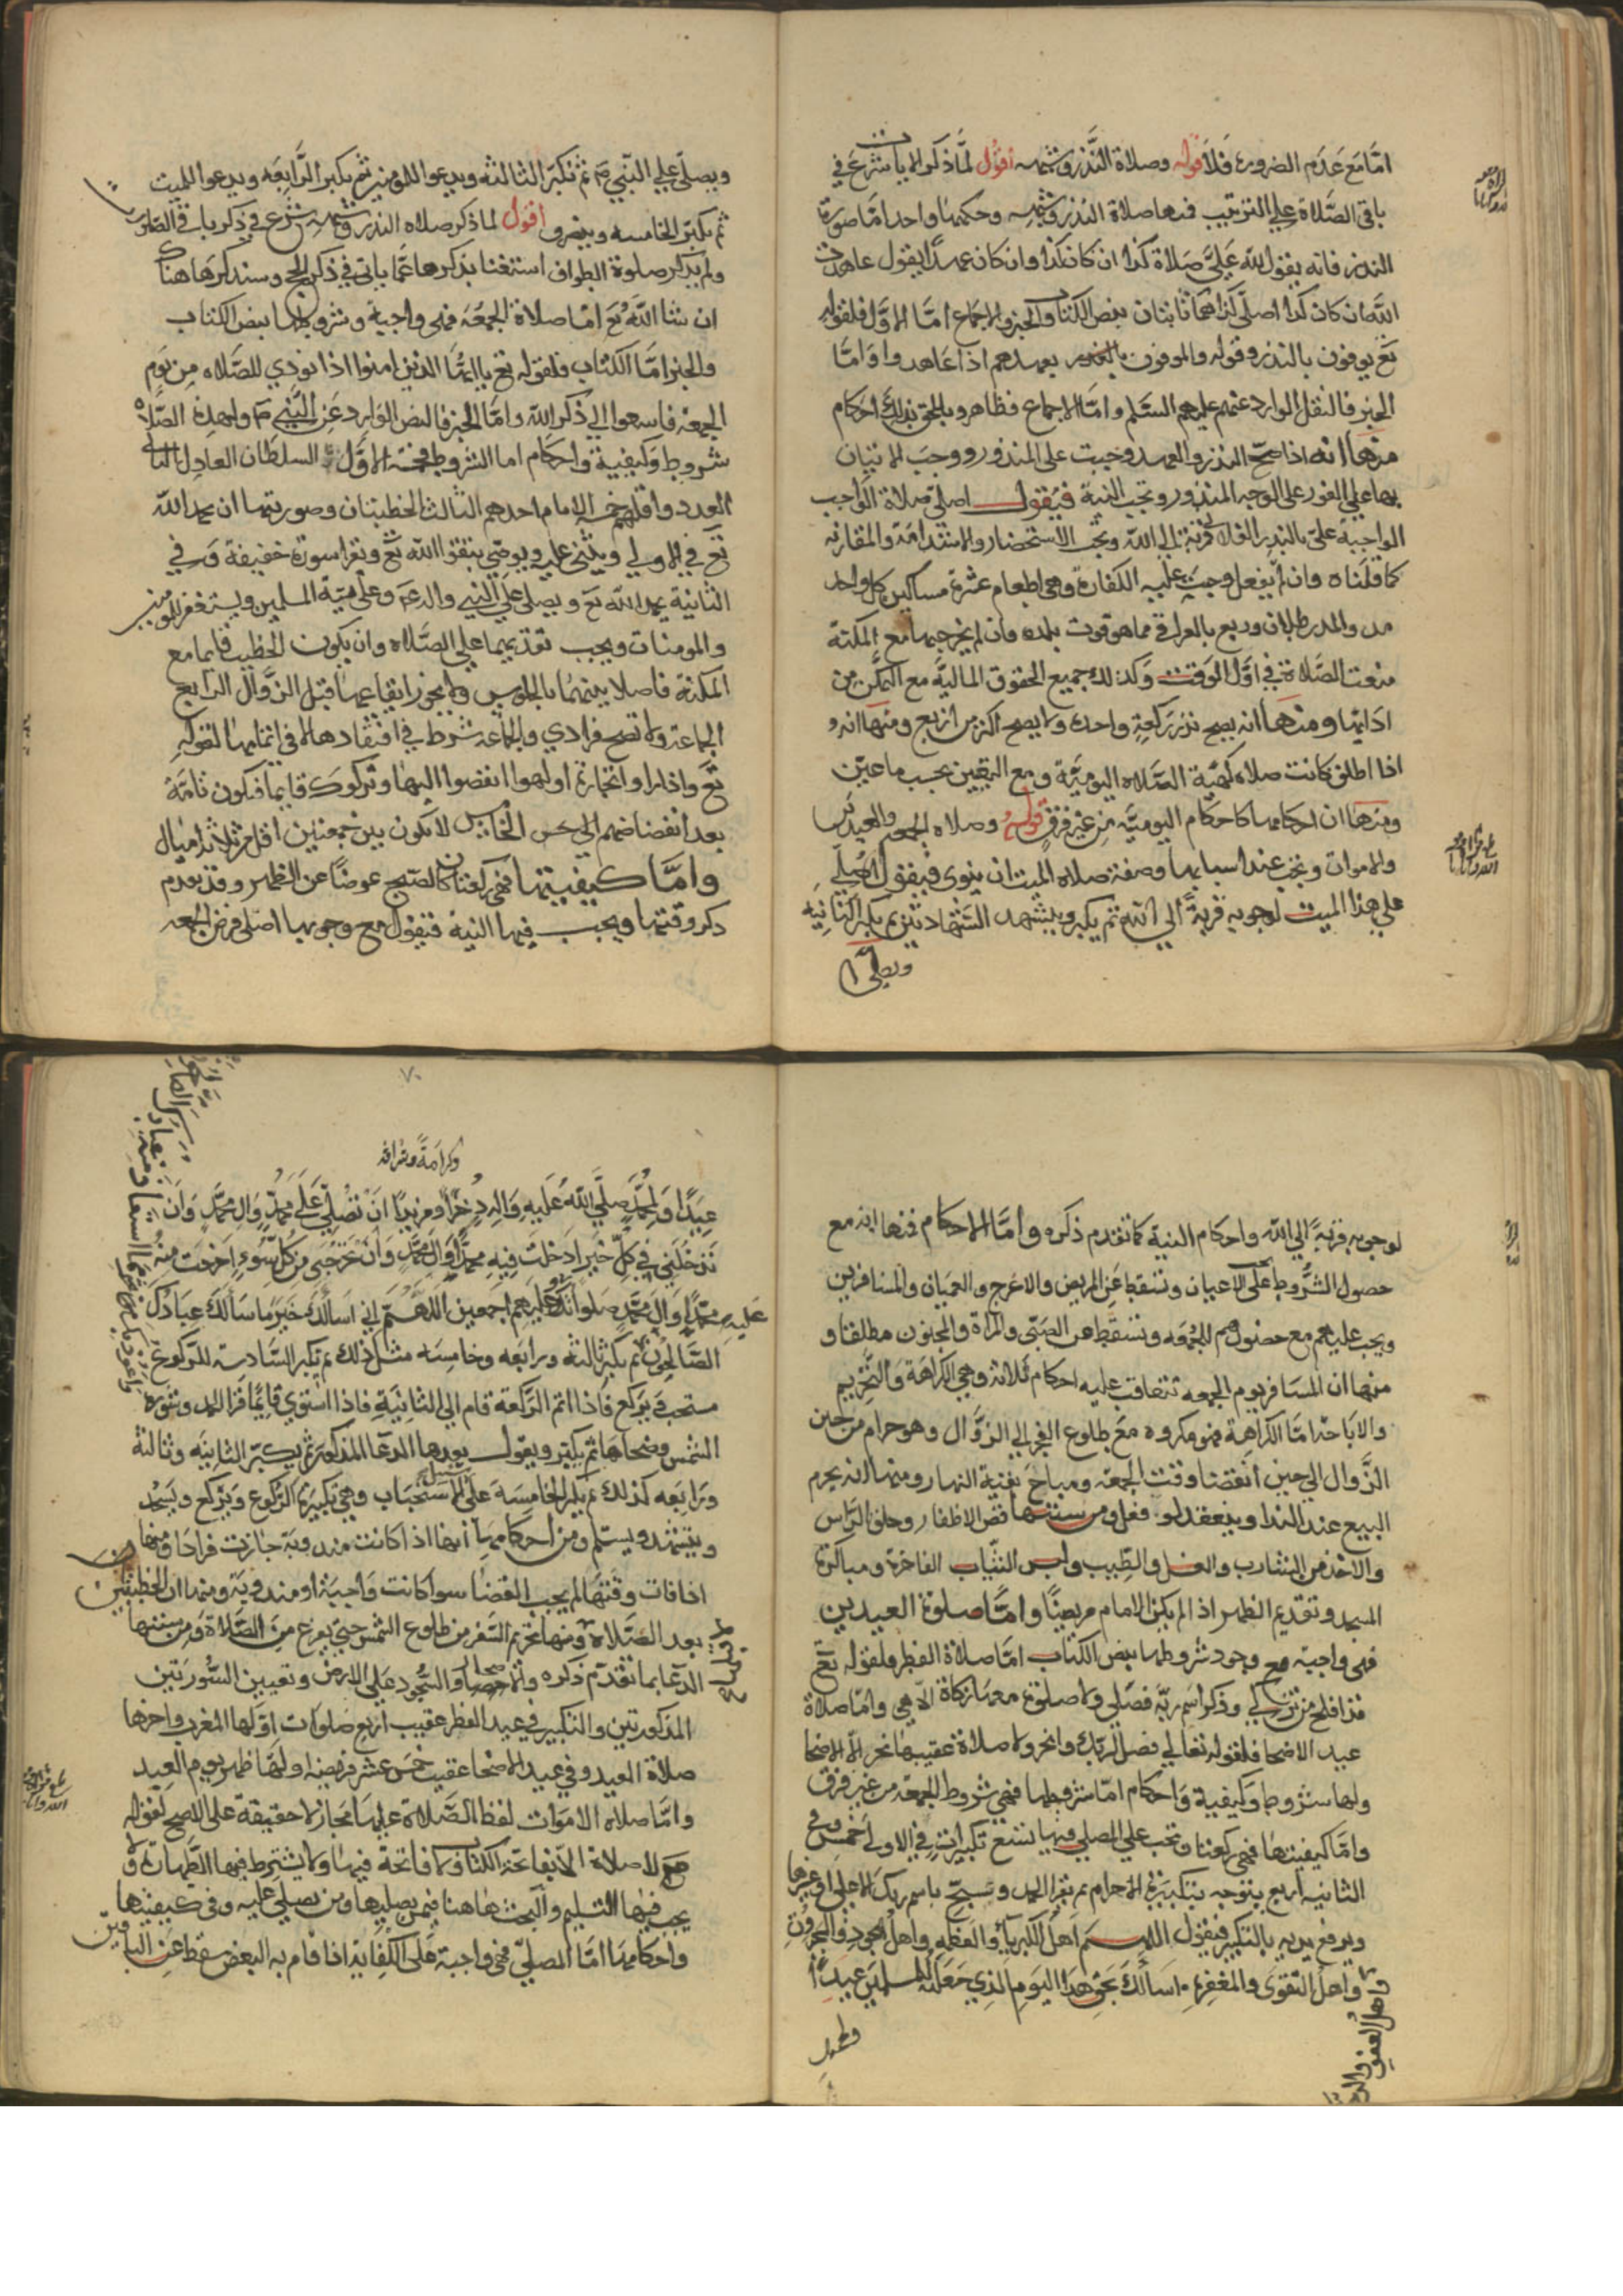 امّا مَع عَدَم الضرورة فلا قوله وصلاة النَّذر وشبهه اقول لمَّا ذكر الايات شرَع في
باقى الصَّلاة على الترتيب فمنها صلاة النذر وشبهه وحكمهما واحد امّا صورة
النذر فانه يقول لله عَلَيَّ صَلاة كذا ان كان كذا وان كان عهدًا يقول عاهدت
اللّه ان كان كذا اصلّى كذا فهما ثابتان بنص الكتاب والخبر والاجماع امّا الاوّل فلقوله
تع يوفون بالنذر وقوله والموفون بعهدهم اذا عاهدوا وَامّا
الخبر فالنقل الوارد عنهم عليهم السَّلم وامّا الاجماع فظاهر ويلحق بذلك احكام
منها انه اذا صحّ النذر والعهد وجبت على المنذور ووجبَ الاتيان
بها على الفور على الوجه المنذور وتجب النية فيَقول اصلّى صلاة الواجب
الواجبة علىّ بالنذر الفلانى قربةً الى الله ويجب الاستحضار والاستدامة والمقارنه
كما قلناه فان لم يفعل وجبَت عليه الكفارة وهى اطعام عشرة مساكين كل واحد
مد والمد رطلان وربع بالعراقى مما هو قوت بلده فان لم يخرجها مع المكنة
منعت الصّلاة في اوّل الوَقت وَكذلك جميع الحقوق الماليّة مع التمكّن من
ادَايها ومنها انه يصح نذر رَكعةٍ واحدة ولا يصح اكثر من اربع ومنها انه
اذا اطلق كانت صلاة كهيَّة الصَّلاة اليوميَّة ومع التعيين بحسب ما عيّن
ومنها ان احكامها كاحكام اليوميَّه مِن غير فرق قوله وصلاه الجمعه والعيدين
والاموات وتجب عند اسبابها وصفة صلاة الميت ان ينوى فيقول اصلّى
على هذا الميت لوجوبه قربةً الى الله ثم يكبر ويتشهد الشَّهادتين ثم يكبر الثانيه
ويصلّى
ويصلّى على النّبي ص ثم تكبّر الثالثه ويدعوا للمومنين ثم يكبر الرَّابعَه ويدعوا للميت
ثم يكبّر الخامسه وينصرف اقول لما ذكر صلاه النذر وشبهه شرع في ذكر باقى الصّلوات
ولم يذكر صلوة الطواف استغنا بذكرها عمّا ياتى في ذكر الحج وسنذكرها هناك
ان شا اللّهُ تع امّا صلاة الجمعَه فهى واجبة وشروطها بنص الكتاب
والخبر امّا الكتاب فلقوله تع يا ايهَّا الذين امنوا اذا نودي للصَّلاه مِن يَوم
الجمعة فاسعوا الى ذكر الله وامَّا الخبر فالنص الوارد عَن النَّبى ص ولهذه الصَّلاة
شروط وَكيفية وَاحكام اما الشروط فخمسة الاوّل السلطان العادِل الثانى
العدد واقلهم خمسه الامام احدهم الثالث الخطبتان وصورتهما ان يحمد اللّه
تع في الاولى ويثنى عليه ويوصّى بتقوا اللّه تع وتقرا سورة خفيفة وَفي
الثانية يحمد اللّه تع ويصلى على النّبى واله ع وعلى ايمّة المسلمين ويستغفر للمومنين
والمومنات ويجب تقديمهما على الصَّلاه وان يكون الخطيب قايما مع
المكنة فاصلا بينهمَا بالجلوس ولا يجوز ايقاعهما قبل الزوَّال الرابع
الجماعة ولا تصح فرادي والجمَاعة شرط في انعقادها لا في اتمامها لقوله
تَع وَاذا راوا تجارةً او لهوا انفضوا اليها وتركوكَ قايما فيكون تامّة
بعد انفضاضهم الخامِس لا يكون بين جمعتين اقل من ثلاثة اميَال
وامَّا كيفيتها فهى ركعتان كالصّبح عوضًا عن الظهر وقد تقدم
ذكر وقتها ويجب فيها النية فتقول مع وجوبها اصلّى فرض الجمعه
لوجوبه قربَةً الى الله واحكام النية كما تقدم ذكره وامَّا الاحكام فمنها انه مع
حصول الشُّروط تجب على الاعيان وتسقط عن المريض والاعرج والعميَان والمسافرين
ويجب عليهم مع حضورهم للجُمعَه وتسقط عن الصَبّى والمراة والمجنون مطلقا و
منها ان المسَافر يوم الجمعه تتعاقب عليه احكام ثلاثة وهى الكراهَة وَالتَّحريم
والابَاحة امَّا الكراهِة فهو مكروه مَعَ طلوع الفجر الى الزوَّال وهو حرام من حين
الزَّوال الى حين انقضا وقت الجمعَه ومباحٌ بقية النهار ومنها انه يحرم
البيع عند الندا وينعقد لو فعل ومن سننها قصّ الاظفار وحلق الرَّاس
والاخذ من الشارب والغسل والطِّيب ولبس الثّيَاب الفاخرة ومباكرة
المسجد وتقديم الظهر اذا لم يكن الامام مرضيًّا وامَّا صلوة العيدين
فهى واجبة مع وجود شروطها بنص الكتاب امّا صلاة الفطر فلقوله تع
قد افلح من تزكّى وذكر اسَم ربّه فصَلّى ولا صلوة معهَا زكاة الّا هى وامّا صلاة
عيد الاضحا فلقوله تعالى فصل لربّك وانحر ولا صلاة عقيبها نحر الّا الاضحا
ولها شروط وكيفية وَاحكام امّا شروطها فهى شروط الجمعَة من غير فرق
وامَّا كيفيتها فهى ركعتان وتجب على المصلى فيها تسَع تكبيراتٍ في الاولى خمسٌ وفى
الثانيه اربع يتوجه بتكبيرة الاحرام ثم يقرا الحمد وتسبّح باسم ربك الاعلى او غيرها
ويرفع يديه بالتكبير فيقول اللهم اَهل الكبريآءِ والعظمةِ واَهل الجودِ والجبَروُتِ
واهل العفو والرحمة
وَاَهل التقوَى والمغفِرَةِ اَسَألكَ بحَقِّ هَذا اليَومِ الّذِي جَعَلتَهُ للمسلمِينَ عِيدًا
وكرامَةً وشرافة
عِيَدًا وَلِمُحمَّدٍ صَلَّى اللهُ عَلَيهِ وَالِهِ ذُخرًا ومزيدًا اَنْ تصَلّى عَلى مُحمَّدٍ وَالِ محمَّدٍ وَانَ
تدْخُلَنِي في كلِّ خَيرٍ ادَخلتَ فِيهِ محمَّدًا وَالَ مُحمَّدٍ وَانْ تخرجَنى مِن كلِّ سُوءٍ اَخرَجتَ مِنهُ
مُحمَّدًا وَالَ مُحمَّدٍ صَلوَاتكَ عَليهِ وعَليهِم اَجمعين اللهُمَّ انى اسَالكَ خَيرَ مَا سَألكَ عِبَادُكَ
الصَّالحُونَ ثم يكبّر ثالثه ورابَعه وخامِسَه مثل ذلك ثم يكبر السَّادسة للرّكوع
مستحب ويركع فاذا اتم الرّكعة قام الى الثانِيَةِ فاذا استوي قايِمًا قرا الحمد وسوره
الشمس وضحاها ثم يكبر ويقول بعدها الدعا المذكور ثم يكبر الثانيَه وثالثة
ورَابعَه كذلك ثم يكبر الخامِسَة على سبيل الاستحبَاب وهى تكبيَرة الركوع ويركع ويَسجُد
ويتشهد ويسلّم ومن احكامِهَا انها اذا كانت مندوبة جازت فرادَا ومنها
اذا فات وقتهَا لم يجب القضا سوا كانت وَاجبَة او مندوبة ومنها ان الخطبتين
بعد الصَّلاة ومنها تحريم السَّفر من طلوع الشمس حتى يفرغ منَ الصَّلاة وَمِن سننها
الدعَا بما تقدّم ذكره والاصحار والسُّجود عَلى الارض وتعيين السُّورَتين
المذكورتين والتكبير في عيد الفطر عقيب اربع صَلوَات اوّلها المغرب واخرها
صلاة العيد وفي عيد الاضحا عقيب خمسَ عشر فريضة اولهَا ظهر يوم العيد
وامّا صلاه الاموَات لفظ الصّلاة عليها مَجاز لا حقيقة على الاصح لقوله
ع لا صلاة الّا بفاتحَة الكتاب ولا فاتحَة فيها وَلا يشترط فيها الطّهارة ولا
يجب فيها التسليم والبَحث هَاهنا فيمن يصليها ومن يصلى عليه وفى كيفيتها
واحكامها امّا المصلىّ فهى واجبة عَلى الكفاية اذا قام به البعض سقط عَن الباقين